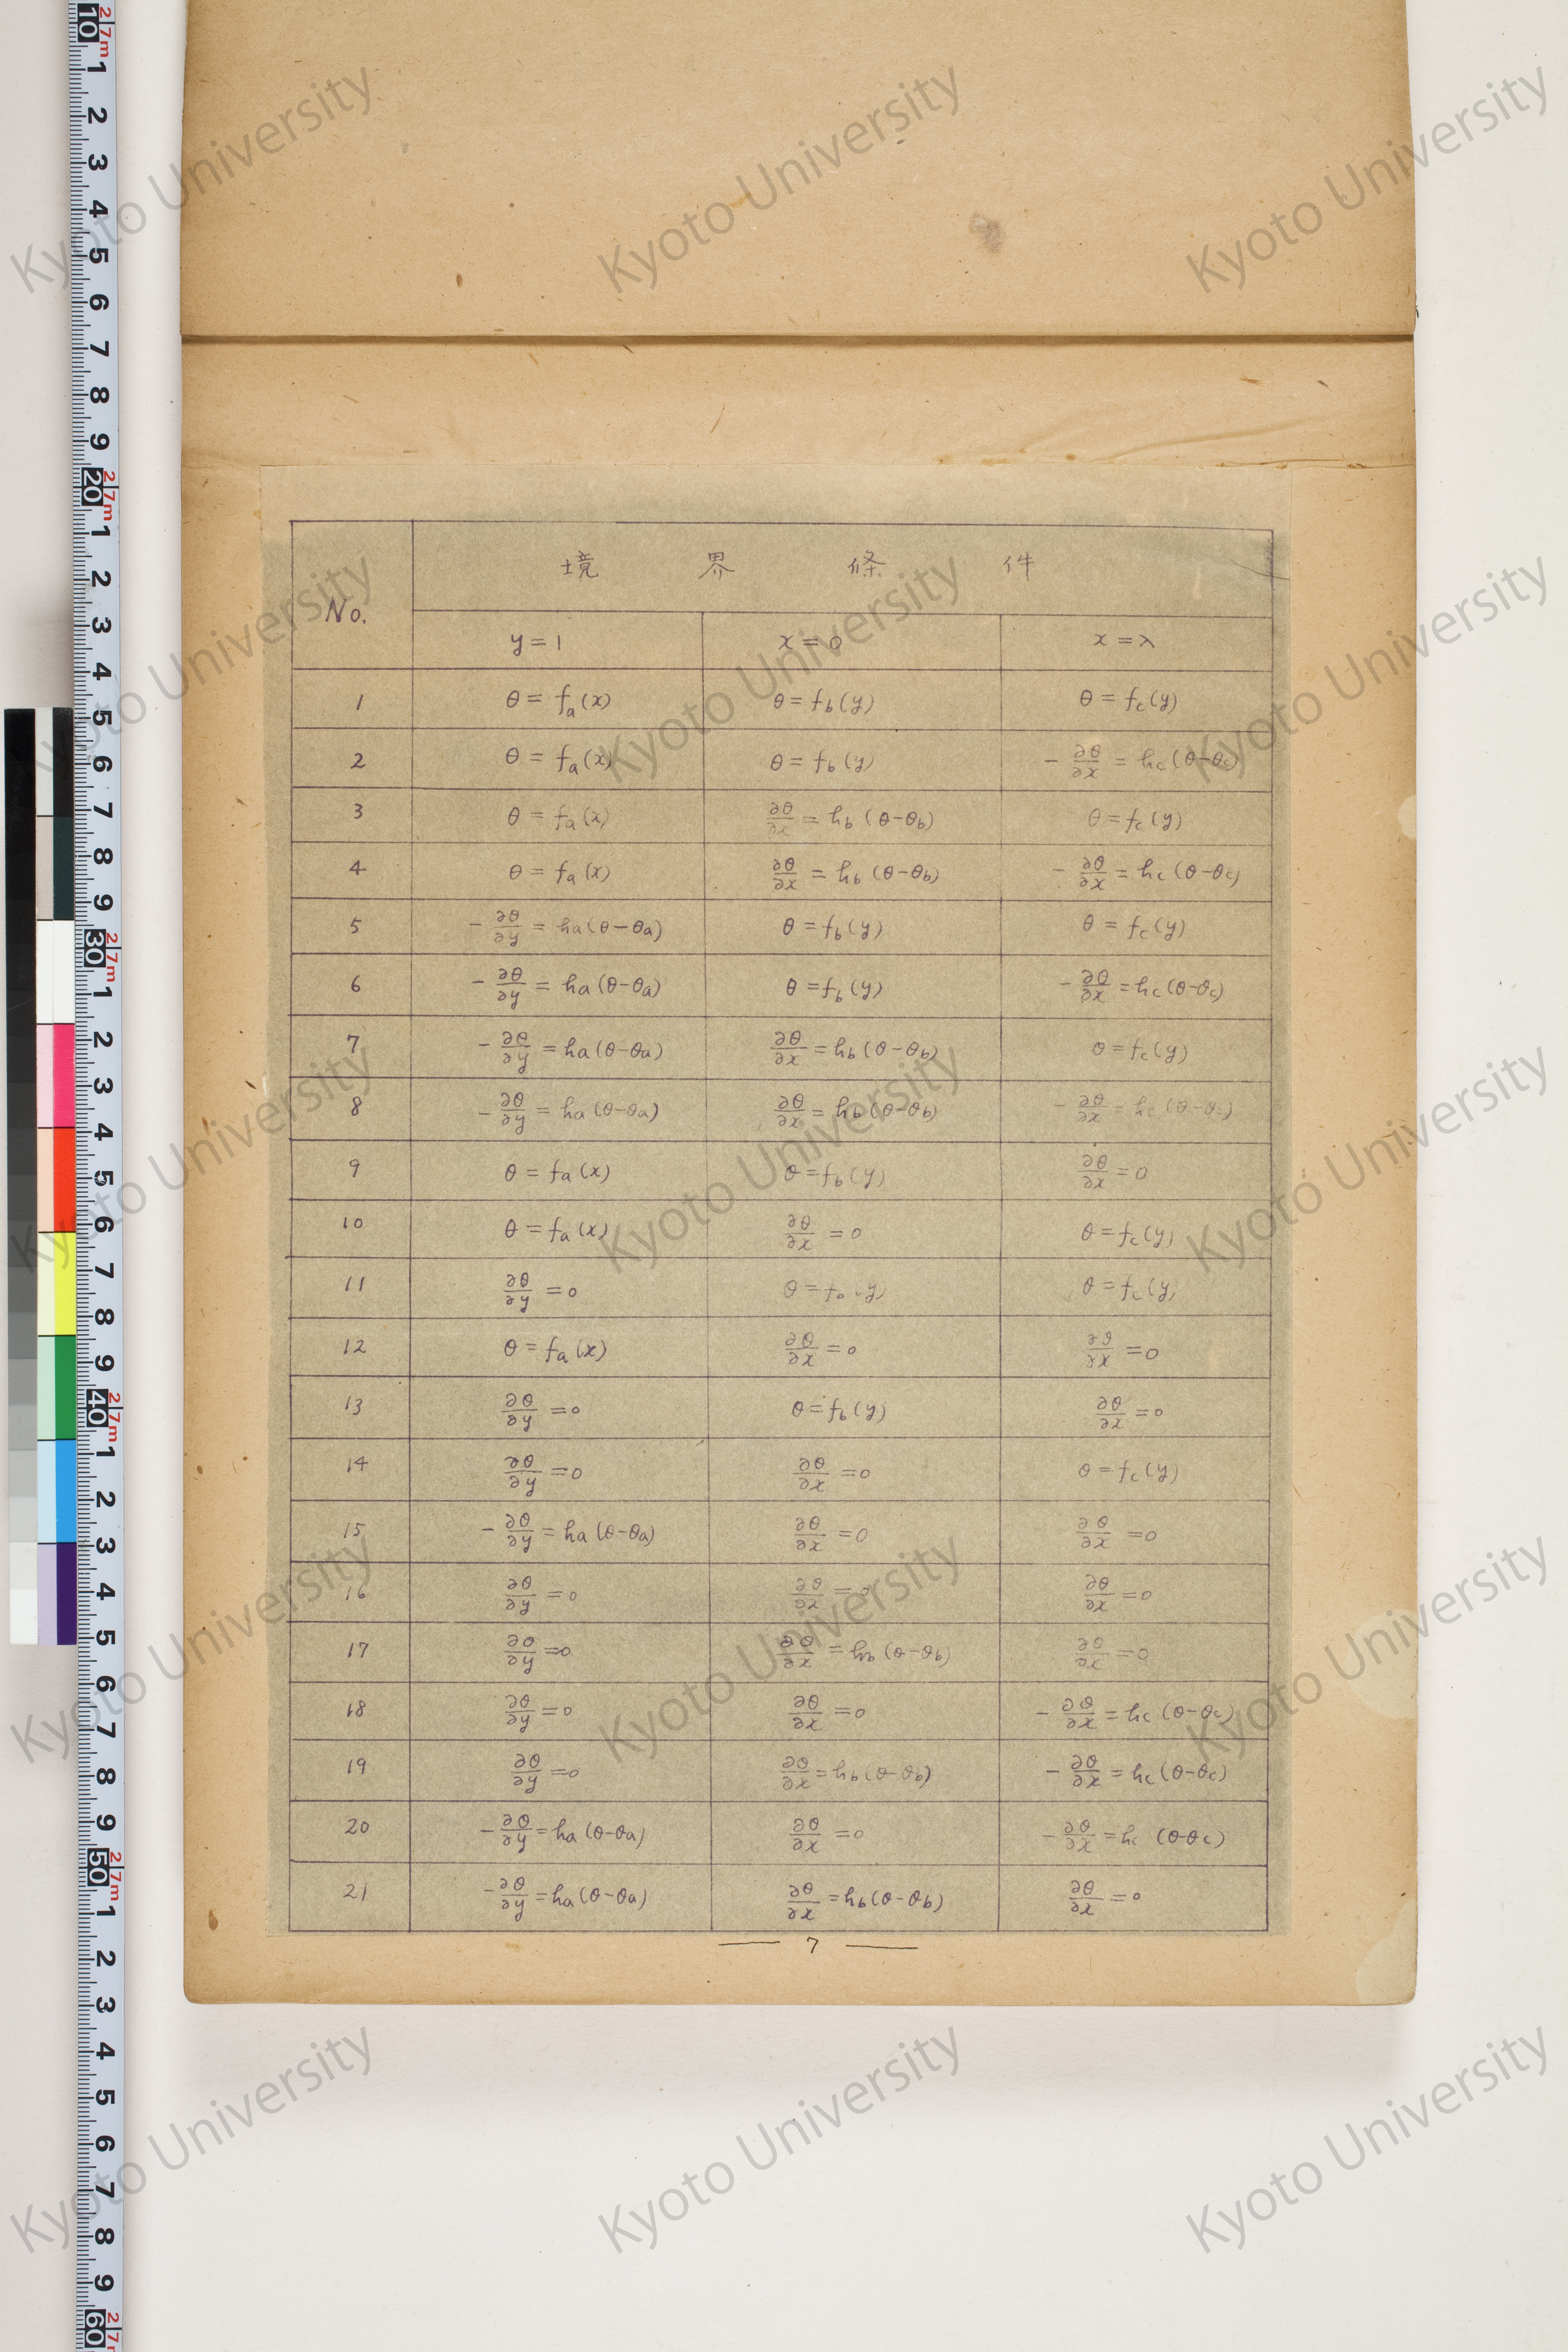 境界條件
No.
y=1 x=0 x=λ
1 θ=fa(x) θ=fb(y) θ=fc(y)
2 θ=fa(x) θ=fb(y) -∂θ/∂x=hc(θ-θc)
3 θ=fa(x) ∂θ/∂x=hb(θ-θb) θ=fc(y)
4 θ=fa(x) ∂θ/∂x=hb(θ-θb) -∂θ/∂x=hc(θ-θc)
5 -∂θ/∂y=ha(θ-θa) θ=fb(y) θ=fc(y)
6 -∂θ/∂y=ha(θ-θa) θ=fb(y) -∂θ/∂x=hc(θ-θc)
7 -∂θ/∂y=ha(θ-θa) ∂θ/∂x=hb(θ-θb) θ=fc(y)
8 -∂θ/∂y=ha(θ-θa) ∂θ/∂x=hb(θ-θb) -∂θ/∂x=hc(θ-θc)
9 θ=fa(x) θ=fb(y) ∂θ/∂x=0
10 θ=fa(x) ∂θ/∂x=0 θ=fc(y)
11 ∂θ/∂y=0 θ=fb(y) θ=fc(y)
12 θ=fa(x) ∂θ/∂x=0 ∂θ/∂x=0
13 ∂θ/∂y=0 θ=fb(y) ∂θ/∂x=0
14 ∂θ/∂y=0 ∂θ/∂x=0 θ=fc(y)
15 -∂θ/∂y=ha(θ-θa) ∂θ/∂x=0 ∂θ/∂x=0
16 ∂θ/∂y=0 ∂θ/∂x=0 ∂θ/∂x=0
17 ∂θ/∂y=0 ∂θ/∂x=hb(θ-θb) ∂θ/∂x=0
18 ∂θ/∂y=0 ∂θ/∂x=0 -∂θ/∂x=hc(θ-θc)
19 ∂θ/∂y=0 ∂θ/∂x=hb(θ-θb) -∂θ/∂x=hc(θ-θc)
20 -∂θ/∂y=ha(θ-θa) ∂θ/∂x=0 -∂θ/∂x=hc(θ-θc)
21 -∂θ/∂y=ha(θ-θa) ∂θ/∂x=hb(θ-θb) ∂θ/∂x=0
— 7 —
Kyoto University